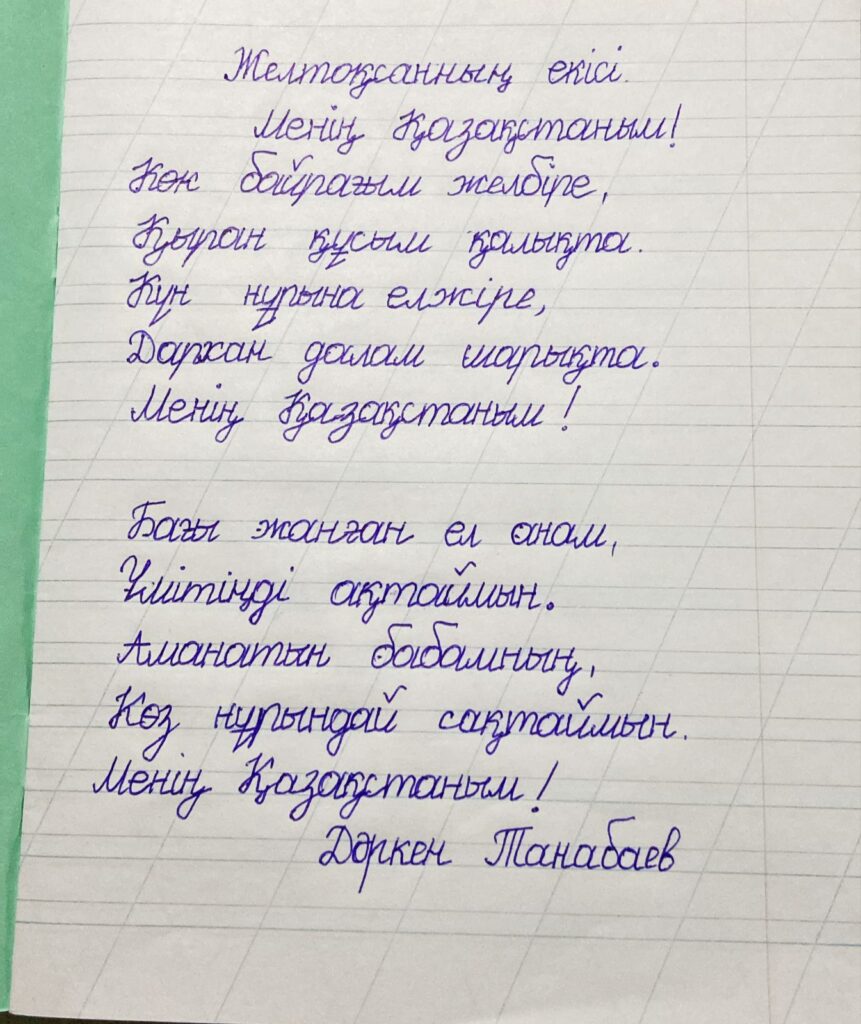 Желтоқсанның екісі.
Менің Қазақстаным!
Көк байрағым желбіре,
Қыран құсым қалықта.
Күн нұрына елжіре,
Дархан далам шарықта.
Менің Қазақстаным!
Бағы жанған ел анам,
Үмітіңді ақтаймын.
Аманатын бабамның,
Көз нұрындай сақтаймын.
Менің Қазақстаным!
Дәркен Танабаев